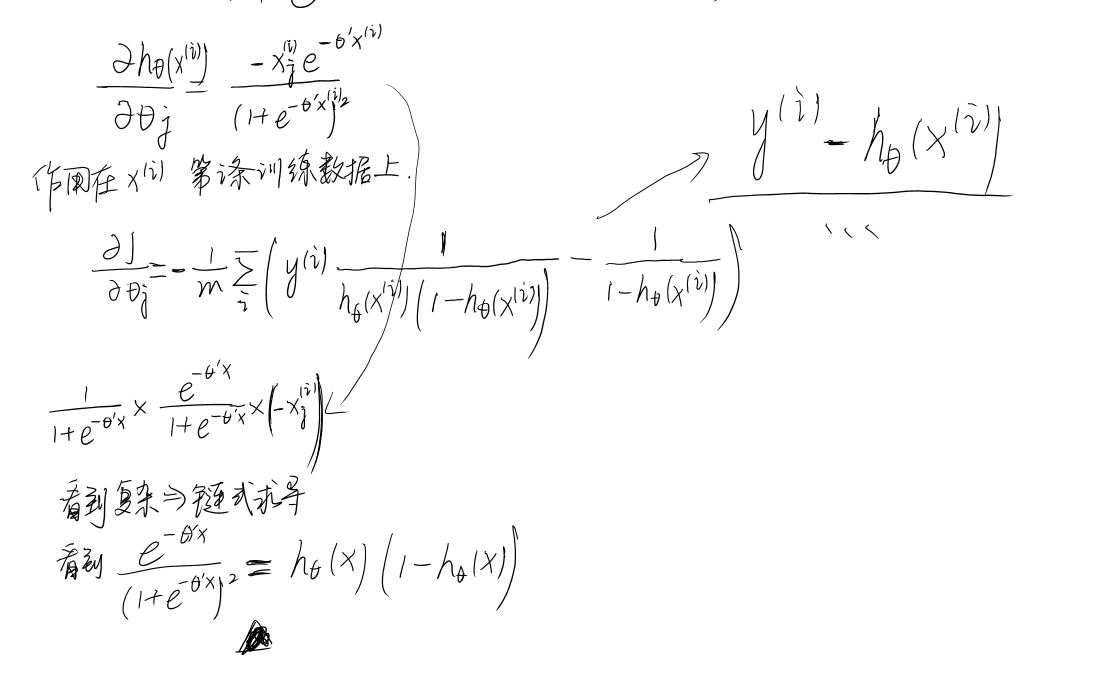 ∂hθ(x⁽ⁱ⁾)/∂θj = -xj⁽ⁱ⁾ e^(-θ'x⁽ⁱ⁾) / (1+e^(-θ'x⁽ⁱ⁾))²
作用在 x⁽ⁱ⁾ 第i条训练数据上.
y⁽ⁱ⁾ - hθ(x⁽ⁱ⁾) / ...
∂J/∂θj = - 1/m Σi ( y⁽ⁱ⁾ 1/(hθ(x⁽ⁱ⁾)(1-hθ(x⁽ⁱ⁾))) - 1/(1-hθ(x⁽ⁱ⁾)) )
1/(1+e^(-θ'x)) × e^(-θ'x)/(1+e^(-θ'x)) × (-xj⁽ⁱ⁾)
看到复杂⇒链式求导
看到 e^(-θ'x)/(1+e^(-θ'x))² = hθ(x)(1-hθ(x))